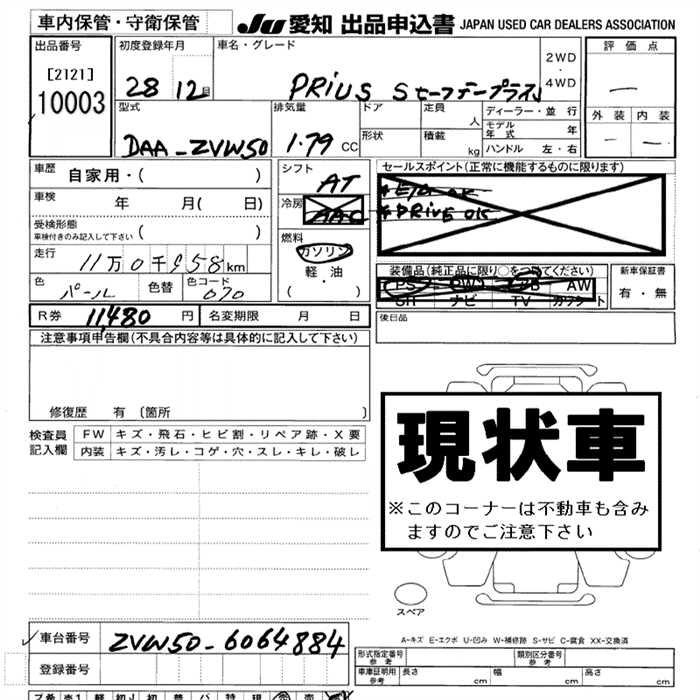 車内保管・守衛保管
JU 愛知 出品申込書 JAPAN USED CAR DEALERS ASSOCIATION
出品番号 初度登録年月 車名・グレード 評価点
[2121]
10003
28 12月 PRiUS S セーフテープラス 2WD・4WD ー
型式 排気量 ドア 定員 人 ディーラー・並行 外装 内装
DAA-ZVW50 1.79 CC 形状 積載 kg モデル年式 年 ー ー
ハンドル 左・右
車歴 自家用・( )
シフト AT
セールスポイント(正常に機能するものに限ります)
車検 年 月( 日)
冷房 AAC
受検形態 ( )
車検付きのみ記入して下さい
燃料 ガソリン 軽・油 ・( )
走行 11万0千958km
色 パール 色替 色コード 070
装備品(純正品に限り○をつけてください)
PS PW AW
SR ナビ TV
新車保証書 有・無
R券 11,480 円 名変期限 月 日
後日品
注意事項申告欄(不具合内容等は具体的に記入して下さい)
修復歴 有 (箇所 )
現状車
※このコーナーは不動車も含み
ますのでご注意下さい
検査員記入欄
FW キズ・飛石・ヒビ割・リペア跡・X要
内装 キズ・汚レ・コゲ・穴・スレ・キレ・破レ
スペア
A-キズ E-エクボ U-凹み W-補修跡 S-サビ C-腐食 XX-交換済
車台番号 ZVW50-6064884
登録番号
形式指定番号 参考 類別区分番号 参考
車庫証明用 参考 長さ cm 幅 cm 高さ cm